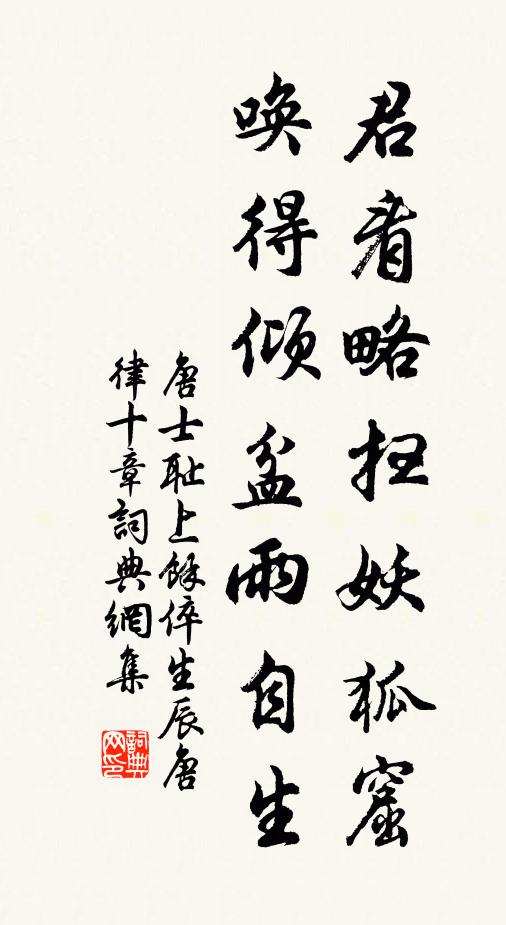 君看略扫妖狐窟
唤得倾盆雨自生
唐士耻上餘倅生辰唐
律十章詞典網集
詞典
网印